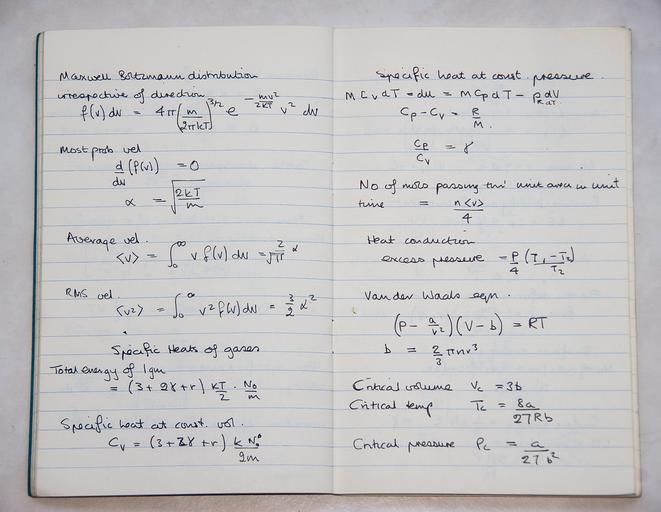 Maxwell Boltzmann distribution
irrespective of direction
f(v)dv = 4π(m/2πkT)^3/2 e^-mv²/2kT v² dv
Most prob vel
d/dv (f(v)) = 0
α = √(2kT/m)
Average vel.
<v> = ∫₀^∞ v f(v) dv = 2/√π α
RMS vel.
<v²> = ∫₀^∞ v² f(v) dv = 3/2 α²
Specific Heats of gases
Total energy of 1gm
= (3 + 2γ + r) kT/2 . N₀/m
Specific heat at const. vol.
Cv = (3 + 2γ + r) k N₀/2m
Specific heat at const. pressure.
M Cv dT = du = M Cp dT - dV
Cp - Cv = R/M.
Cp/Cv = γ
No of mols passing thr' unit area in unit
time = n<v>/4
Heat conduction
excess pressure = P/4 (T₁ - T₂)/T₂
Van der Waals eqn.
(P - a/v²)(V - b) = RT
b = 2/3 πnr³
Critical volume Vc = 3b
Critical temp Tc = 8a/27Rb
Critical pressure Pc = a/27b²